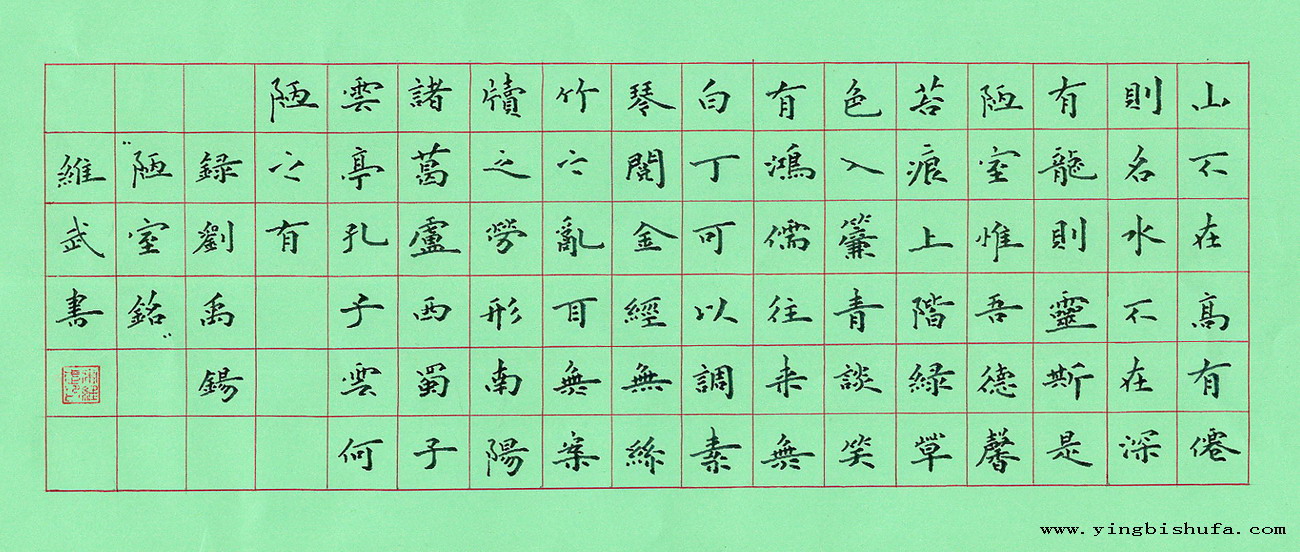 山不在高有僊
則名水不在深
有龍則靈斯是
陋室惟吾德馨
苔痕上階緑草
色入簾青談笑
有鴻儒往来無
白丁可以調素
琴閲金經無絲
竹之亂耳無案
牘之勞形南陽
諸葛盧西蜀子
雲亭孔子雲何
陋之有
録劉禹錫
"陋室銘"
維武書
www.yingbishufa.com